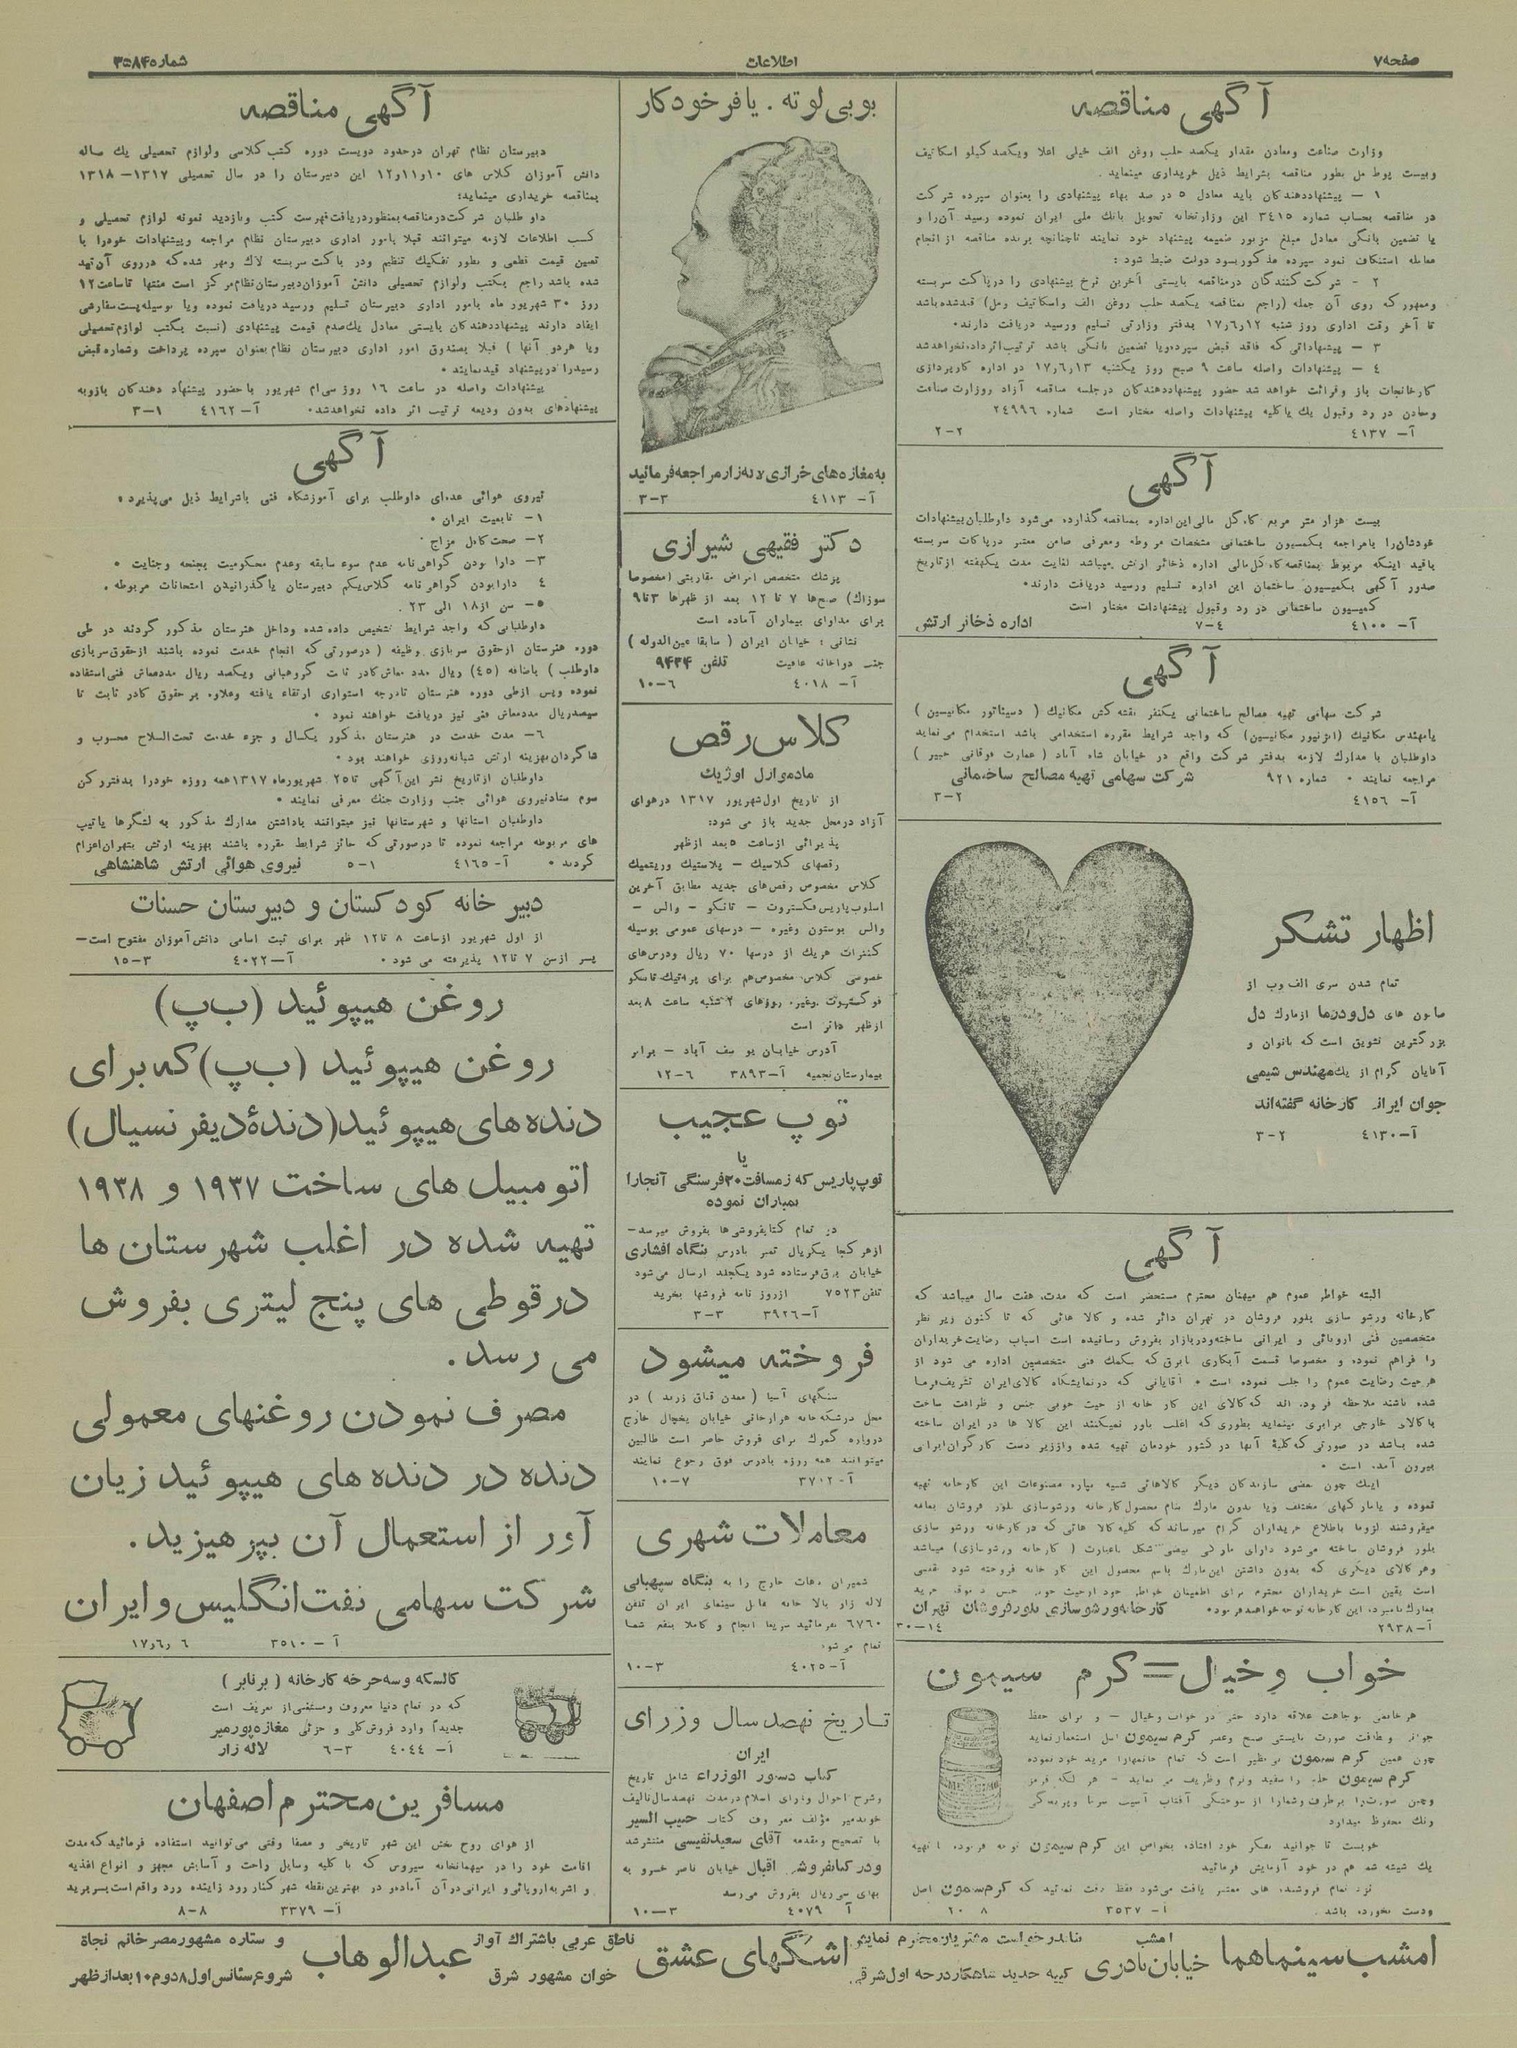 صفحه ۷
اطلاعات
شماره ۳۵۸۴
آگهی مناقصه
وزارت صناعت ومعادن مقدار یکصد حلب روغن الف خیلی اعلا ویکصد کیلو اسکاتیف
وبیست پوط مل بطور مناقصه بشرایط ذیل خریداری مینماید.
۱ — پیشنهاددهندکان باید معادل ۵ در صد بهاء پیشنهادی را بعنوان سپرده شرکت
در مناقصه بحساب شماره ۳٤۱۵ این وزارتخانه تحویل بانک ملی ایران نموده رسید آن‌را و
یا تضمین بانگی معادل مبلغ مزبور ضمیمه پیشنهاد خود نمایند تاچنانچه برنده مناقصه از انجام
معامله استنکاف نمود سپرده مذکور بسود دولت ضبط شود :
۲ - شرکت کنندگان درمناقصه بایستی آخرین نرخ پیشنهادی را درپاکت سربسته
وممهور که روی آن جمله (راجع بمناقصه یکصد حلب روغن الف واسکاتیف ومل) قیدشده‌باشد
تا آخر وقت اداری روز شنبه ۱۷ر۶ر۱۲ بدفتر وزارتی تسلیم ورسید دریافت دارند.
۳ — پیشنهاداتی که فاقد قبض سپرده‌ویا تضمین بانکی باشد ترتیب‌اثرداده‌نخواهدشد
٤ — پیشنهادات واصله ساعت ۹ صبح روز یکشنبه ۱۷ر۶ر۱۳ در اداره کارپردازی
کارخانجات باز وقرائت خواهد شد حضور پیشنهاددهندکان درجلسه مناقصه آزاد وزارت صناعت
ومعادن در رد وقبول یک یاکلیه پیشنهادات واصله مختار است شماره ۲٤۹۹۶
آ— ٤۱۳۷ ۲-۲
آگهی
بیست هزار متر مربع کاه‌گل مالی این اداره بمناقصه گذارده می‌شود داوطلبان پیشنهادات
خودشان‌را بامراجعه بکمسیون ساختمانی مشخصات مربوطه ومعرفی ضامن معتبر درپاکات سربسته
باقید اینکه مربوط بمناقصه کاه‌گل‌مالی اداره ذخائر ارتش میباشد لغایت مدت یکهفته ازتاریخ
صدور آگهی بکمیسیون ساختمان این اداره تسلیم ورسید دریافت دارند.
کمیسیون ساختمانی در رد وقبول پیشنهادات مختار است
آ— ٤۱۰۰ ۷-٤ اداره ذخائر ارتش
آگهی
شرکت سهامی تهیه مصالح ساختمانی یکنفر نقشه‌کش مکانیک ( دسیناتور مکانیسین )
یامهندس مکانیک (انژنیور مکانیسین) که واجد شرایط مقرره استخدامی باشد استخدام می‌نماید
داوطلبان با مدارک لازمه بدفتر شرکت واقع در خیابان شاه آباد ( عمارت فوقانی خبیر )
مراجعه نمایند . شماره ۹۲۱ شرکت سهامی تهیه مصالح ساختمانی
آ— ٤۱۵۶ ۳-۲
اظهار تشکر
تمام شدن سری الف وب از
صابون های دل‌ودرما ازمارک دل
بزرگترین تشویق است که بانوان و
آقایان گرام از یک‌مهندس شیمی
جوان ایرانی کارخانه گفته‌اند
آ—٤۱۳۰ ۳-۲
آگهی
البته خواطر عموم هم میهنان محترم مستحضر است که مدت هفت سال میباشد که
کارخانه ورشو سازی بلور فروشان در تهران دائر شده و کالا هائی که تا کنون زیر نظر
متخصصین فنی اروپائی و ایرانی ساخته‌ودربازار بفروش رسانیده است اسباب رضایت‌خریداران
را فراهم نموده و مخصوصا قسمت آبکاری بابرق که بکمک فنی متخصصین اداره می شود از
هرحیث رضایت عموم را جلب نموده است . آقایانی که درنمایشگاه کالای‌ایران تشریف‌فرما
شده باشند ملاحظه فرموده‌اند که‌کالای این کار خانه از حیث خوبی جنس و ظرافت ساخت
باکالای خارجی برابری مینماید بطوری که اغلب باور نمیکنند این کالا ها در ایران ساخته
شده باشد در صورتی که‌کلیهٔ آنها در کشور خودمان تهیه شده واززیر دست کارگران ایرانی
بیرون آمده است .
اینک چون بعضی سازندکان دیگر کالاهائی شبیه بپاره مصنوعات این کارخانه تهیه
نموده و بامارکهای مختلف ویا بدون مارک بنام محصول کارخانه ورشوسازی بلور فروشان بعامه
میفروشند لزوما باطلاع خریداران گرام میرساند که کلیه کالا هائی که در کارخانه ورشو سازی
بلور فروشان ساخته می‌شود دارای مارکی بیضی شکل باعبارت ( کارخانه ورشوسازی) میباشد
وهر کالای دیگری که بدون داشتن این‌مارک باسم محصول این کار خانه فروخته شود تقلبی
است یقین است خریداران محترم برای اطمینان خواطر خود
کارخانه‌ورشوسازی بلورفروشان تهران
آ—۲۹۳۸ ۳۰—۱٤
خواب وخیال=کرم سیمون
هرخانمی بوجاهت علاقه دارد حتی در خواب وخیال — و برای حفظ
جوانی و لطافت صورت بایستی صبح وعصر کرم سیمون اصل استعمال‌نماید
چون همین کرم سیمون بی‌نظیر است که تمام خانمهارا مرید خود نموده
کرم سیمون جلد را سفید ونرم وظریف می نماید — هر لکه قرمز
وچین صورت‌را برطرف وشمارا از سوختگی آفتاب آسیب سرما وپریدگی
رنگ محفوظ میدارد
خوبست تا جوانید بفکر خود افتاده بخواص این کرم سیمون توجه فرموده با تهیه
یک شیشه شما هم در خود آزمایش فرمائید
نزد تمام فروشنده های معتبر یافت می‌شود فقط دقت نمائید که کرم‌سیمون اصل
ودست نخورده باشد. آ— ۳۵۳۷ ۱۰ ۸
بوبی‌لوته . یا فر خودکار
به‌مغازه‌های خرازی لاله‌زار مراجعه‌فرمائید
آ— ٤۱۱۳ ۳-۳
دکتر فقیهی شیرازی
پزشک متخصص امراض مقاربتی (مخصوصا
سوزاک) صبح‌ها ۷ تا ۱۲ بعد از ظهرها ۳تا۹
برای مداوای بیماران آماده است
نشانی : خیابان ایران ( سابقا عین‌الدوله )
جنب دواخانه عافیت تلفن ۹۴۳۴
آ— ٤۰۱۸ ۱۰-۶
کلاس رقص
مادموازل اوژیک
از تاریخ اول‌شهریور ۱۳۱۷ درهوای
آزاد درمحل جدید باز می شود:
پذیرائی ازساعت ۵ بعد ازظهر
رقصهای کلاسیک — پلاستیک وریتمیک
کلاس مخصوص رقص‌های جدید مطابق آخرین
اسلوب‌پاریس‌فکستروت — تانکو — والس —
والس بوستون وغیره — درسهای عمومی بوسیله
کنترات هریک از درسها ۷۰ ریال ودرس‌های
خصوصی کلاس مخصوص‌هم برای پراتیک‌تانکو
فوکستروت وغیره روزهای ۲شنبه ساعت ۸بعد
ازظهر دائر است
آدرس خیابان یوسف آباد — برابر
بیمارستان نجمیه آ—۳۸۹۳ ۱۲-۶
توپ عجیب
یا
توپ‌پاریس که زمسافت۲۰فرسنگی آنجارا
بمباران نموده
در تمام کتابفروشی‌ها بفروش میرسد—
ازهر کجا یکریال تمبر بادرس بنگاه افشاری
خیابان برق‌فرستاده شود یکجلد ارسال می‌شود
تلفن ۷۵۲۳ ازروز نامه فروشها بخرید
آ—۳۹۲۶ ۳-۳
فروخته میشود
سنگهای آسیا ( معدن قباق زرند ) در
محل درشکه خانه هزارخانی خیابان یخچال خارج
دروازه گمرک برای فروش حاضر است طالبین
میتوانند همه روزه بادرس فوق رجوع نمایند
آ- ۳۷۰۲ ۱۰-۷
معاملات شهری
شمیران دهات خارج را به بنگاه سپهبانی
لاله زار بالا خانه مقابل سینمای ایران تلفن
۶۷۶۰ بفرمائید سریعا انجام و کاملا بنفع شما
تمام می‌شود
آ—٤۰۲۵ ۱۰-۳
تاریخ نهصد سال وزرای
ایران
کتاب دستور الوزراء شامل تاریخ
وشرح احوال وزرای اسلام درمدت نهصدسال‌تالیف
خوندمیر مؤلف معروف کتاب حبیب السیر
با تصحیح ومقدمه آقای سعیدنفیسی منتشرشد
ودرکتابفروشی اقبال خیابان ناصر خسرو به
بهای سی‌ریال بفروش می‌رسد
آ ٤۰۷۹ ۱۰—۳
آگهی مناقصه
دبیرستان نظام تهران درحدود دویست دوره کتب‌کلاسی ولوازم تحصیلی یک ساله
دانش آموزان کلاس های ۱۰و۱۱و۱۲ این دبیرستان را در سال تحصیلی ۱۳۱۷— ۱۳۱۸
بمناقصه خریداری مینماید:
داو طلبان شرکت‌درمناقصه بمنظوردریافت‌فهرست کتب وبازدید نمونه لوازم تحصیلی و
کسب اطلاعات لازمه میتوانند قبلا بامور اداری دبیرستان نظام مراجعه وپیشنهادات خودرا با
تعیین قیمت قطعی و بطور تفکیک تنظیم ودر پاکت سربسته لاک ومهر شده‌که درروی آن‌قید
شده باشد راجع بکتب ولوازم تحصیلی دانش آموزان‌دبیرستان‌نظام‌مرکز است منتها تاساعت۱۲
روز ۳۰ شهریور ماه بامور اداری دبیرستان تسلیم ورسید دریافت نموده ویا بوسیله‌پست‌سفارشی
ایفاد دارند پیشنهاددهندکان بایستی معادل یک‌صدم قیمت پیشنهادی (نسبت بکتب لوازم‌تحصیلی
ویا هردو آنها ) قبلا بصندوق امور اداری دبیرستان نظام بعنوان سپرده پرداخت وشماره‌قبض
رسیدرا درپیشنهاد قیدنمایند .
پیشنهادات واصله در ساعت ۱۶ روز سی‌ام شهریور باحضور پیشنهاد دهندکان بازوبه
پیشنهادهای بدون ودیعه ترتیب اثر داده نخواهدشد. آ— ٤۱۶۲ ۳-۱
آگهی
نیروی هوائی عده‌ای داوطلب برای آموزشگاه فنی باشرایط ذیل می‌پذیرد.
۱— تابعیت ایران .
۲— صحت‌کامل مزاج .
۳— دارا بودن گواهی‌نامه عدم سوء سابقه وعدم محکومیت بجنحه وجنایت .
٤ دارابودن گواهی نامه کلاس‌یکم دبیرستان یاگذرانیدن امتحانات مربوطه .
۵— سن از۱۸ الی ۲۳ .
داوطلبانی که واجد شرایط تشخیص داده شده وداخل هنرستان مذکور گردند در طی
دوره هنرستان ازحقوق سربازی وظیفه ( درصورتی‌که انجام خدمت نموده باشند ازحقوق‌سربازی
داوطلب ) باضافه (٤۵) ریال مدد معاش‌کادر ثابت گروهبانی ویکصد ریال مددمعاش فنی‌استفاده
نموده وپس ازطی دوره هنرستان تادرجه استواری ارتقاء یافته وعلاوه برحقوق کادر ثابت تا
سیصدریال مددمعاش فنی نیز دریافت خواهند نمود .
۶— مدت خدمت در هنرستان مذکور یکسال و جزء خدمت تحت‌السلاح محسوب و
شاگردان‌بهزینه ارتش شبانه‌روزی خواهند بود .
داوطلبان ازتاریخ نشر این‌آگهی تا۲۵ شهریورماه ۱۳۱۷همه روزه خودرا بدفتررکن
سوم ستادنیروی هوائی جنب وزارت جنک معرفی نمایند .
داوطلبان استانها و شهرستانها نیز میتوانند باداشتن مدارک مذکور به لشگرها یاتیپ
های مربوطه مراجعه نموده تا درصورتی‌که حائز شرایط مقرره باشند بهزینه ارتش بتهران‌اعزام
گردند . آ—٤۱۶۵ ۵-۱ نیروی هوائی ارتش شاهنشاهی
دبیر خانه کودکستان و دبیرستان حسنات
از اول شهریور ازساعت ۸ تا۱۲ ظهر برای ثبت اسامی دانش‌آموزان مفتوح است—
پسر ازسن ۷ تا۱۲ پذیرفته می شود . آ—٤۰۲۲ ۱۵-۳
روغن هیپوئید (ب‌پ)
روغن هیپوئید (ب‌پ)که برای
دنده‌های هیپوئید(دندهٔ دیفرنسیال)
اتومبیل های ساخت ۱۹۳۷ و ۱۹۳۸
تهیه شده در اغلب شهرستان ها
درقوطی های پنج لیتری بفروش
می رسد.
مصرف نمودن روغنهای معمولی
دنده در دنده های هیپوئید زیان
آور از استعمال آن بپرهیزید.
شرکت سهامی نفت‌انگلیس و ایران
آ —۳۵۱۰ ۱۷ر۶ر۶
کالسکه وسه‌چرخه کارخانه ( برنابر )
که در تمام دنیا معروف ومستغنی از تعریف است
جدیداً وارد فروش‌کلی و جزئی مغازه‌پورمیر
آ— ٤۰٤٤ ۶-۳ لاله زار
مسافرین محترم اصفهان
از هوای روح بخش این شهر تاریخی و مصفا وقتی می‌توانید استفاده فرمائیدکه‌مدت
اقامت خود را در میهمانخانه سیروس که با کلیه وسایل راحت و آسایش مجهز و انواع اغذیه
و اشربه‌اروپائی و ایرانی‌درآن آماده‌و در بهترین‌نقطه شهرکنار رود زاینده رود واقع‌است‌بسربرید
آ— ۳۳۷۹ ۸-۸
امشب‌سینماهما
خیابان‌نادری
امشب
بنابدرخواست مشتریان‌محترم نمایش
کپیه جدید شاهکاردرجه اول‌شرق
اشگهای عشق
ناطق عربی باشتراک آواز
خوان مشهور شرق
عبدالوهاب
و ستاره مشهورمصرخانم نجاة
شروع‌سئانس‌اول۸دوم۱۰بعدازظهر